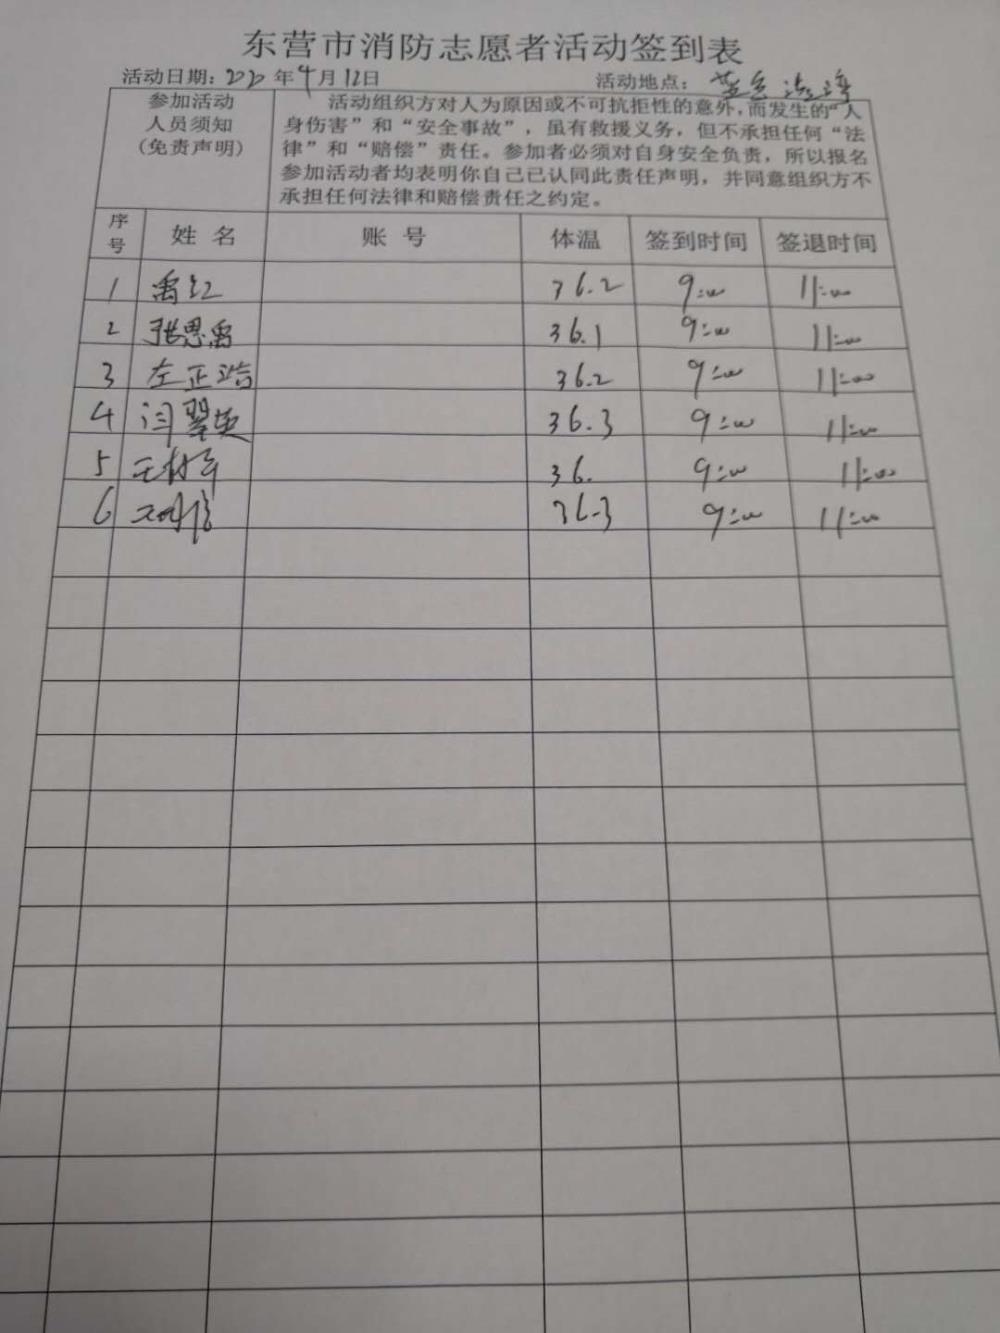 东营市消防志愿者活动签到表
活动日期: 2020年4月12日 活动地点:
参加活动 人员须知 (免责声明)
活动组织方对人为原因或不可抗拒性的意外,而发生的“人
身伤害”和“安全事故”,虽有救援义务,但不承担任何“法
律”和“赔偿”责任。参加者必须对自身安全负责,所以报名
参加活动者均表明你自己已认同此责任声明,并同意组织方不
承担任何法律和赔偿责任之约定。
序号 姓名 账号 体温 签到时间 签退时间
1 禹红 36.2 9:00 11:00
2 张思禹 36.1 9:00 11:00
3 左正浩 36.2 9:00 11:00
4 闫翠英 36.3 9:00 11:00
5 36. 9:00 11:00
6 36.3 9:00 11:00